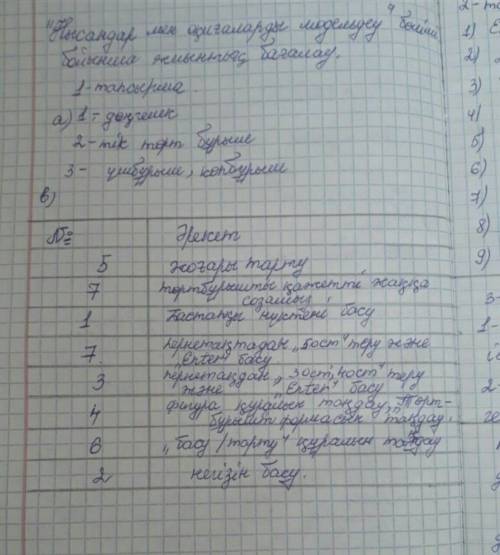 "Нысандар мен оқиғаларды модельдеу" бөлімі
бойынша жиынтық бағалау.
1-тапсырма.
а) 1 - дөңгелек
2-тік төрт бұрыш
3 - үшбұрыш, көпбұрыш
в)
№ Әрекет
5 жоғары тарту
7 төртбұрышты қажетті жаққа
созамыз
1 Бастапқы нүктені басу
7. пернетақтадан "5ост" теру және
"Enter" басу
3 пернетақтдан "30ст, 40ст" теру
және "Enter" басу
4 фигура құралын таңдау, "Төрт-
бұрыш" формасын таңдау.
6 "басу/тарту" құралын таңдау
2 негізін басу.
2-та
1)
2)
3)
4)
5)
6)
7)
8)
9)
3-
1-
2-